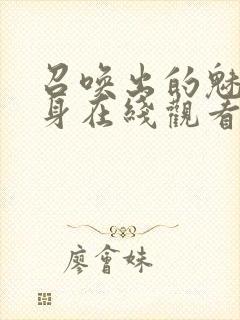 召唤出的魅
身在綫觀看
廖會妹